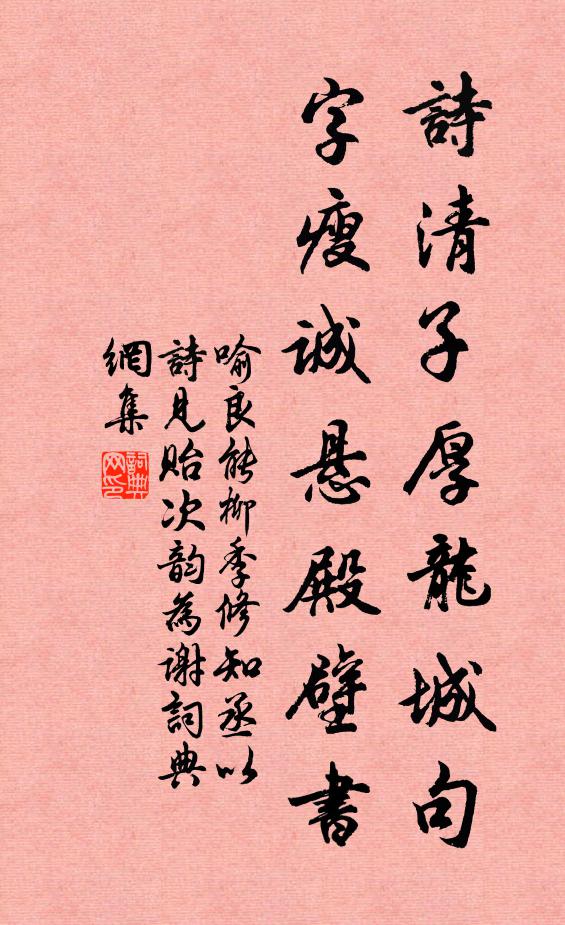 詩清子厚龍城句
字瘦誠悬殿壁書
喻良能柳季修知丞以
詩見貽次韵為谢詞典
網集
詞典网印